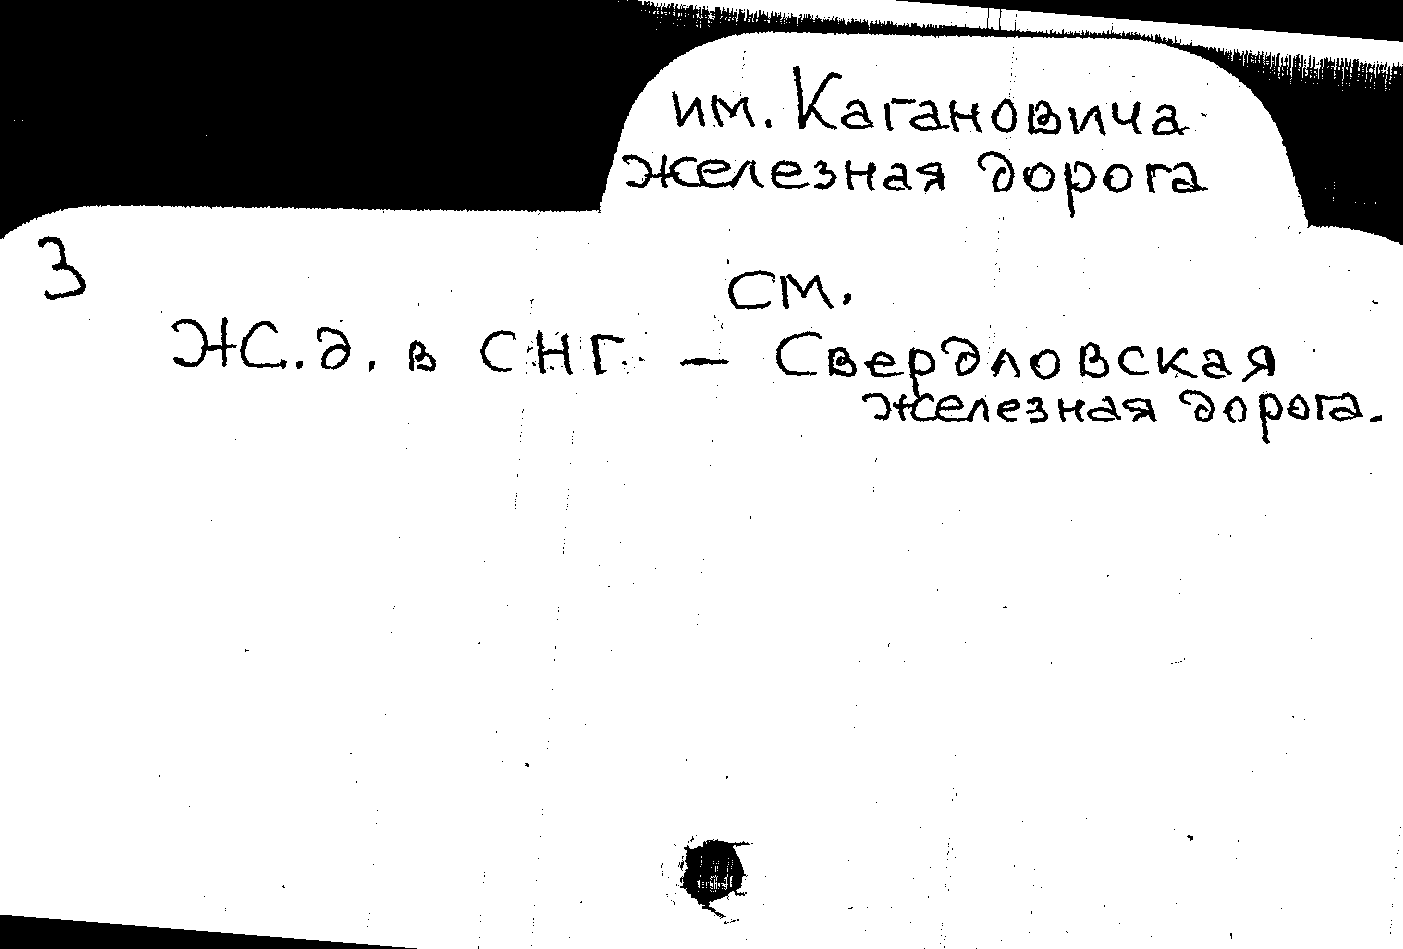 им. Кагановича
железная дорога
3
см.
Ж.д. в СНГ – Свердловская
железная дорога.